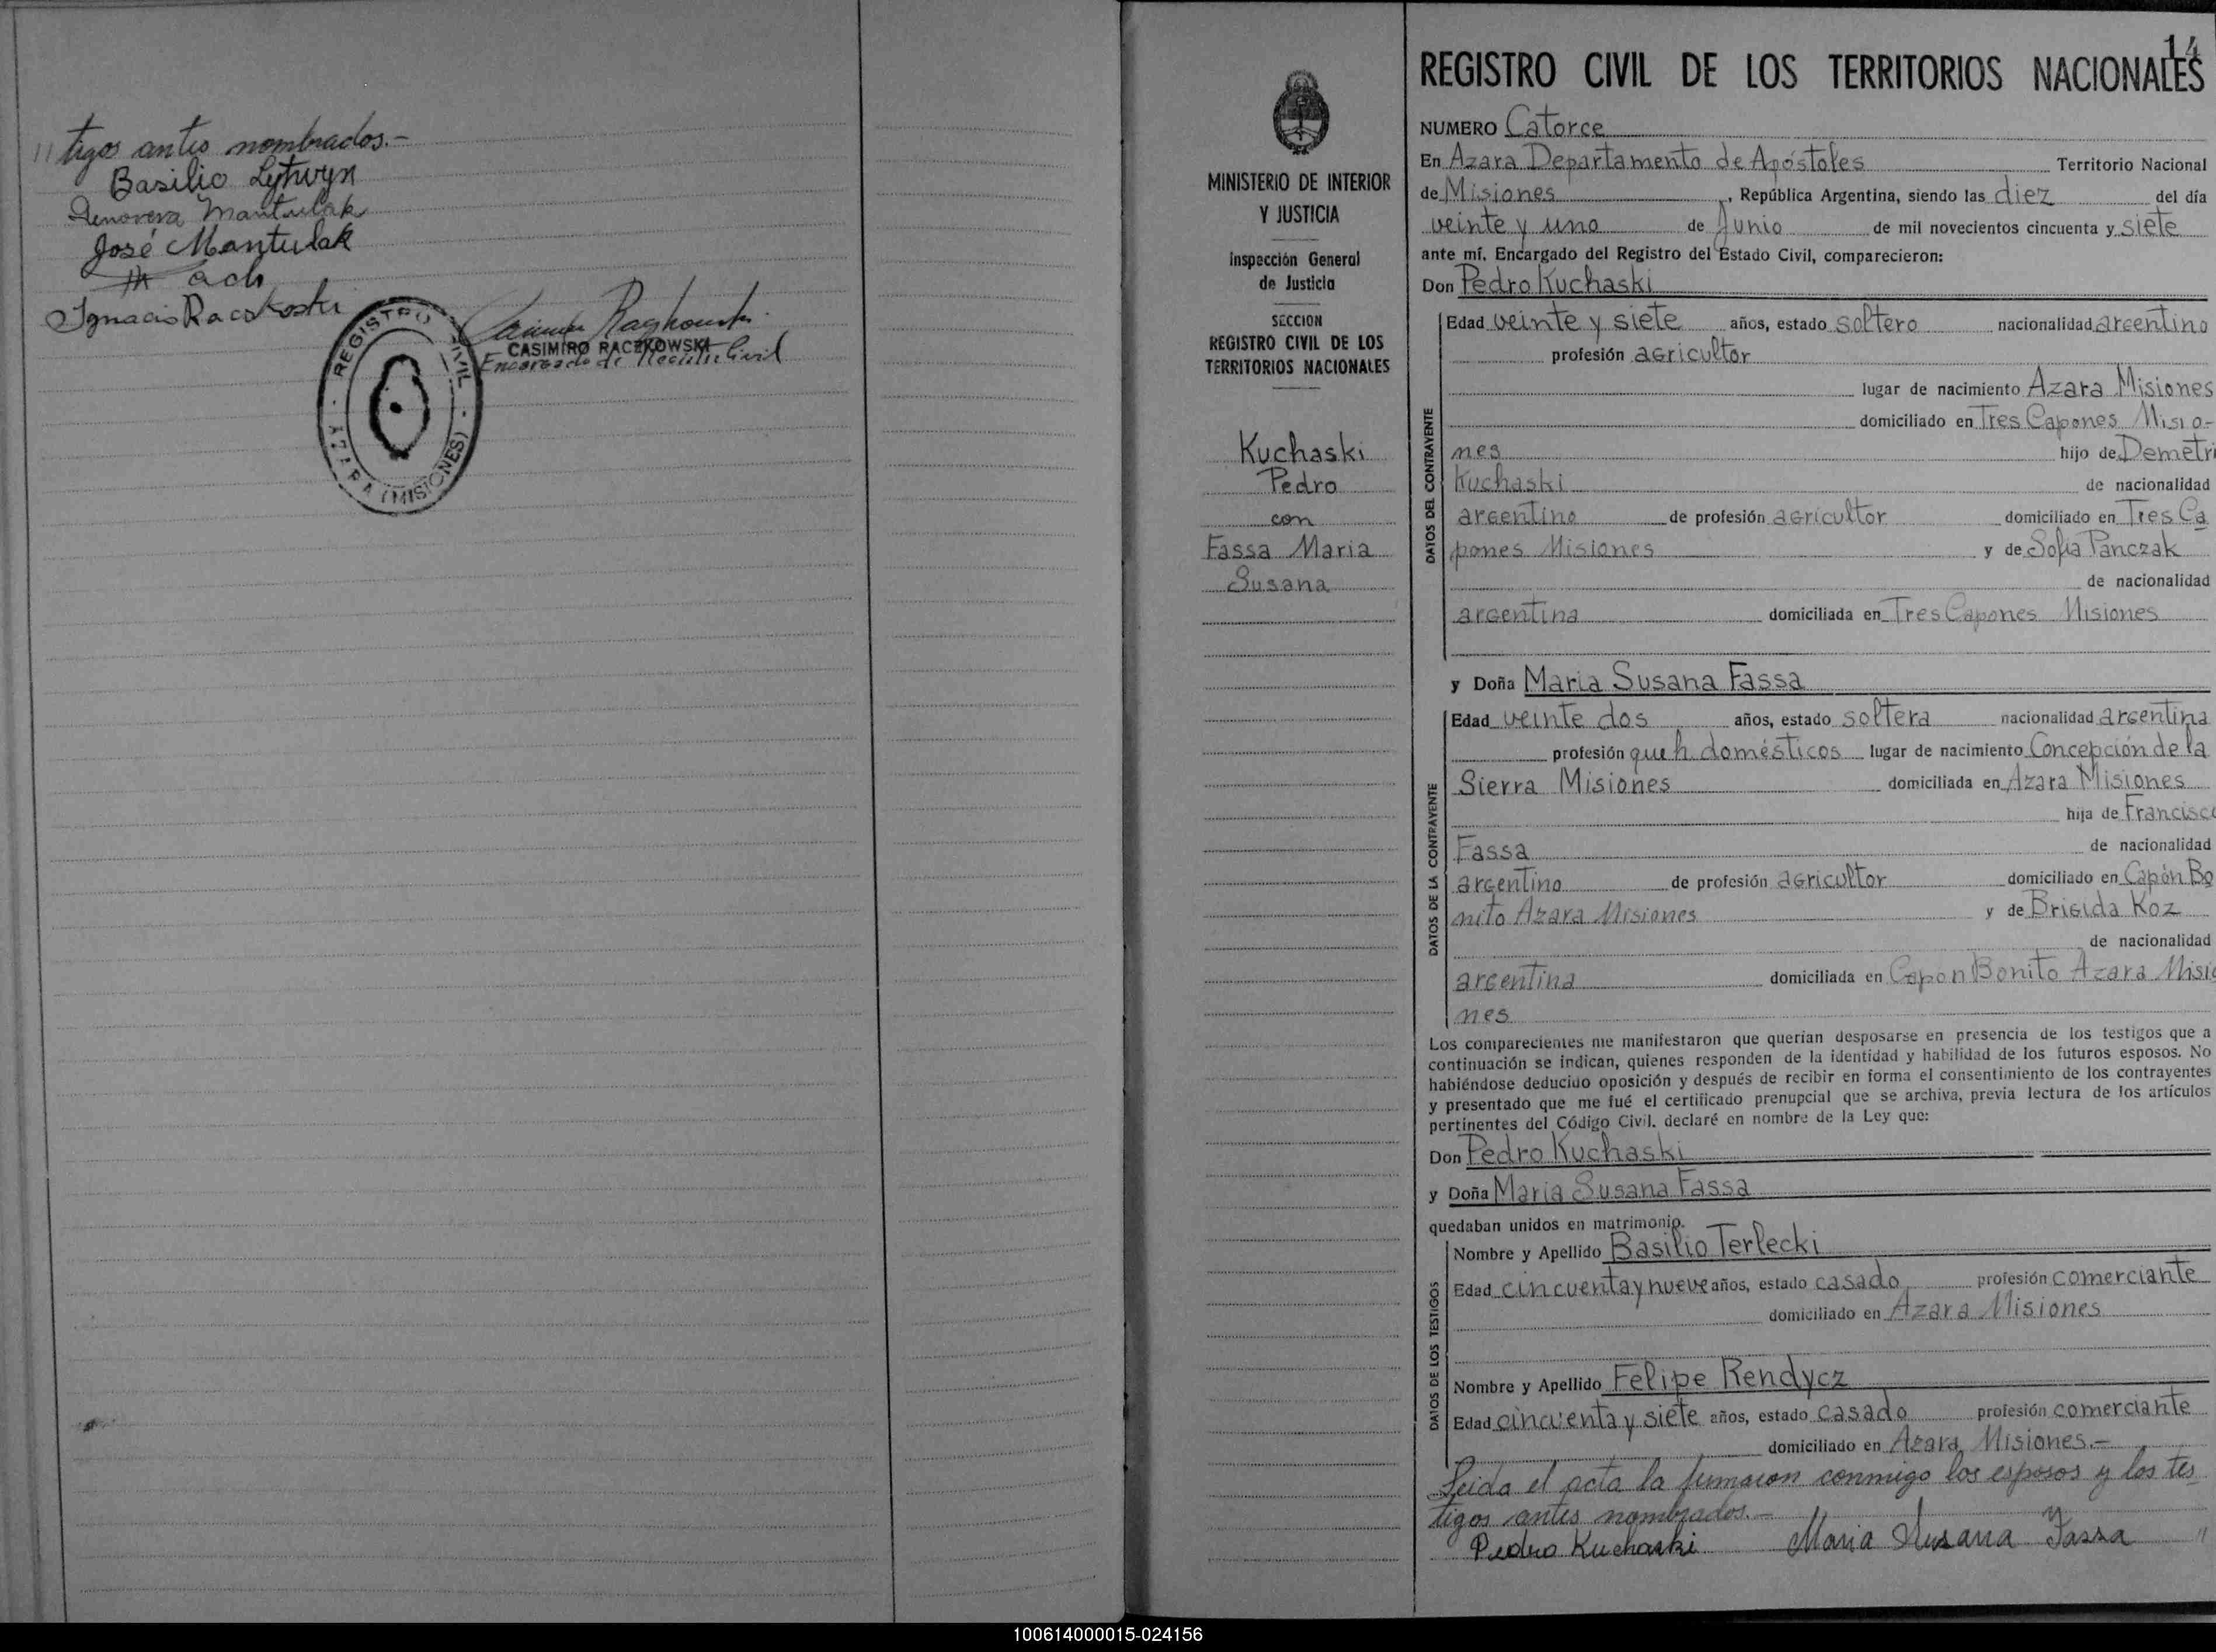 // tigos antes nombrados.-
Basilio Lytwyn
Genoveva Mantulak
José Mantulak
Ignacio Raczkoski
REGISTRO CIVIL
- AZARA (MISIONES) -
CASIMIRO RACZKOWSKI
Encargado de Registro Civil
MINISTERIO DE INTERIOR
Y JUSTICIA
Inspección General
de Justicia
SECCION
REGISTRO CIVIL DE LOS
TERRITORIOS NACIONALES
Kuchaski
Pedro
con
Fassa Maria
Susana
14
REGISTRO CIVIL DE LOS TERRITORIOS NACIONALES
NUMERO Catorce
En Azara Departamento de Apóstoles Territorio Nacional
de Misiones, República Argentina, siendo las diez del día
veinte y uno de Junio de mil novecientos cincuenta y siete
ante mí. Encargado del Registro del Estado Civil, comparecieron:
Don Pedro Kuchaski
DATOS DEL CONTRAYENTE
Edad veinte y siete años, estado soltero nacionalidad argentino
profesión agricultor
lugar de nacimiento Azara Misiones
domiciliado en Tres Capones Misio-
nes hijo de Demetri
Kuchaski de nacionalidad
argentino de profesión agricultor domiciliado en Tres Ca
pones Misiones y de Sofia Panczak
de nacionalidad
argentina domiciliada en Tres Capones Misiones
y Doña Maria Susana Fassa
DATOS DE LA CONTRAYENTE
Edad veinte dos años, estado soltera nacionalidad argentina
profesión queh. domésticos lugar de nacimiento Concepción de la
Sierra Misiones domiciliada en Azara Misiones
hija de Francisco
Fassa de nacionalidad
argentino de profesión agricultor domiciliado en Capón Bo
nito Azara Misiones y de Brigida Koz
de nacionalidad
argentina domiciliada en Capon Bonito Azara Misio
nes
Los comparecientes me manifestaron que querían desposarse en presencia de los testigos que a
continuación se indican, quienes responden de la identidad y habilidad de los futuros esposos. No
habiéndose deducido oposición y después de recibir en forma el consentimiento de los contrayentes
y presentado que me fué el certificado prenupcial que se archiva, previa lectura de los artículos
pertinentes del Código Civil. declaré en nombre de la Ley que:
Don Pedro Kuchaski
y Doña Maria Susana Fassa
quedaban unidos en matrimonio.
DATOS DE LOS TESTIGOS
Nombre y Apellido Basilio Terlecki
Edad cincuenta y nueve años, estado casado profesión comerciante
domiciliado en Azara Misiones
Nombre y Apellido Felipe Rendycz
Edad cincuenta y siete años, estado casado profesión comerciante
domiciliado en Azara Misiones.-
Leida el acta la firmaron conmigo los esposos y los tes
tigos antes nombrados.-
Pedro Kuchaski Maria Susana Fassa //
100614000015-024156